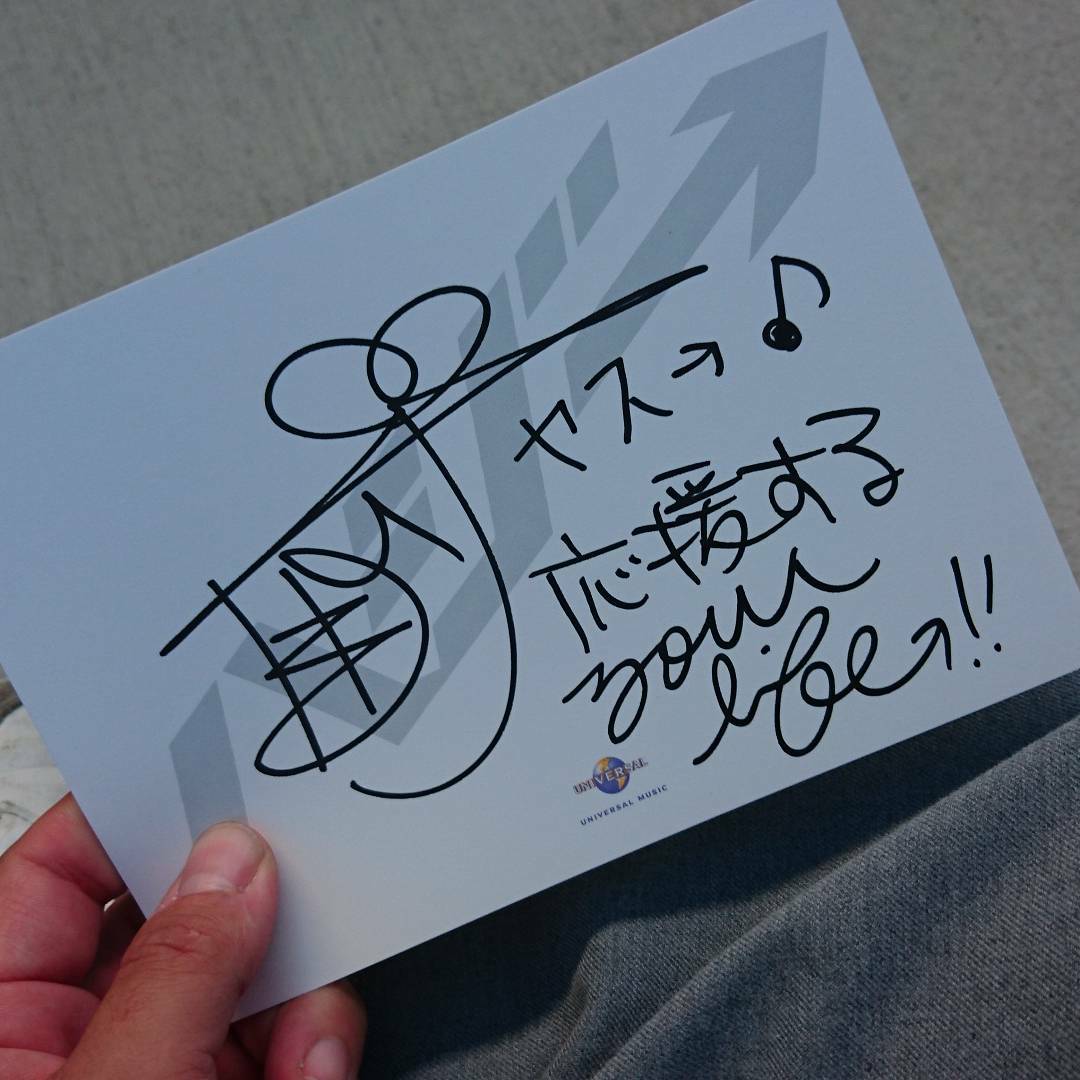 ヤスへ♪
応援する
your
life→!!
UNIVERSAL
UNIVERSAL MUSIC